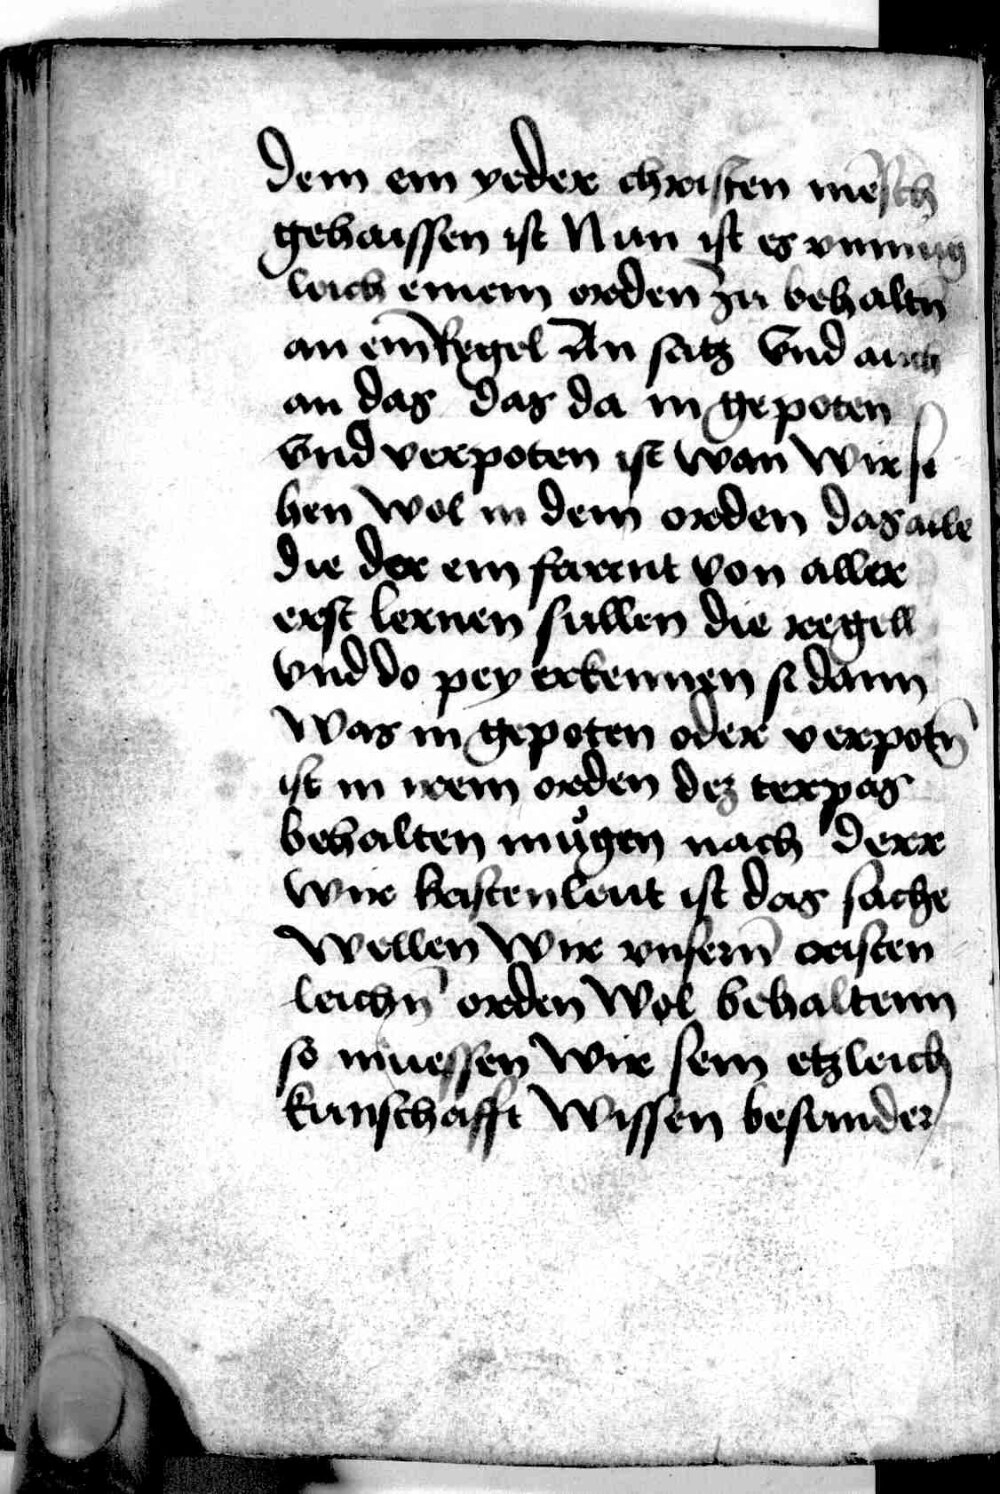 dem ein yeder christen mēsch
gehaissen ist Nun ist es vnmug
leich einem orden zu behaltn̄
an ein̄ Regel An satz Vnd auch
an das das da in gepoten
Vnd verpoten ist wan wir se
hen wol in dem orden das alle
die dor ein farent von aller
erst lernen sullen die regell
vnd do pey erkennen si dann
Was in gepoten oder verpotn̄
ist in irem orden dez
behalten mugen nach derr
wir ist das sache
Wellen wir vnsern̄ cristen
leichn̄ orden wol behaltenn
so muessen wir sein etzleich
kunschafft wissen besunder